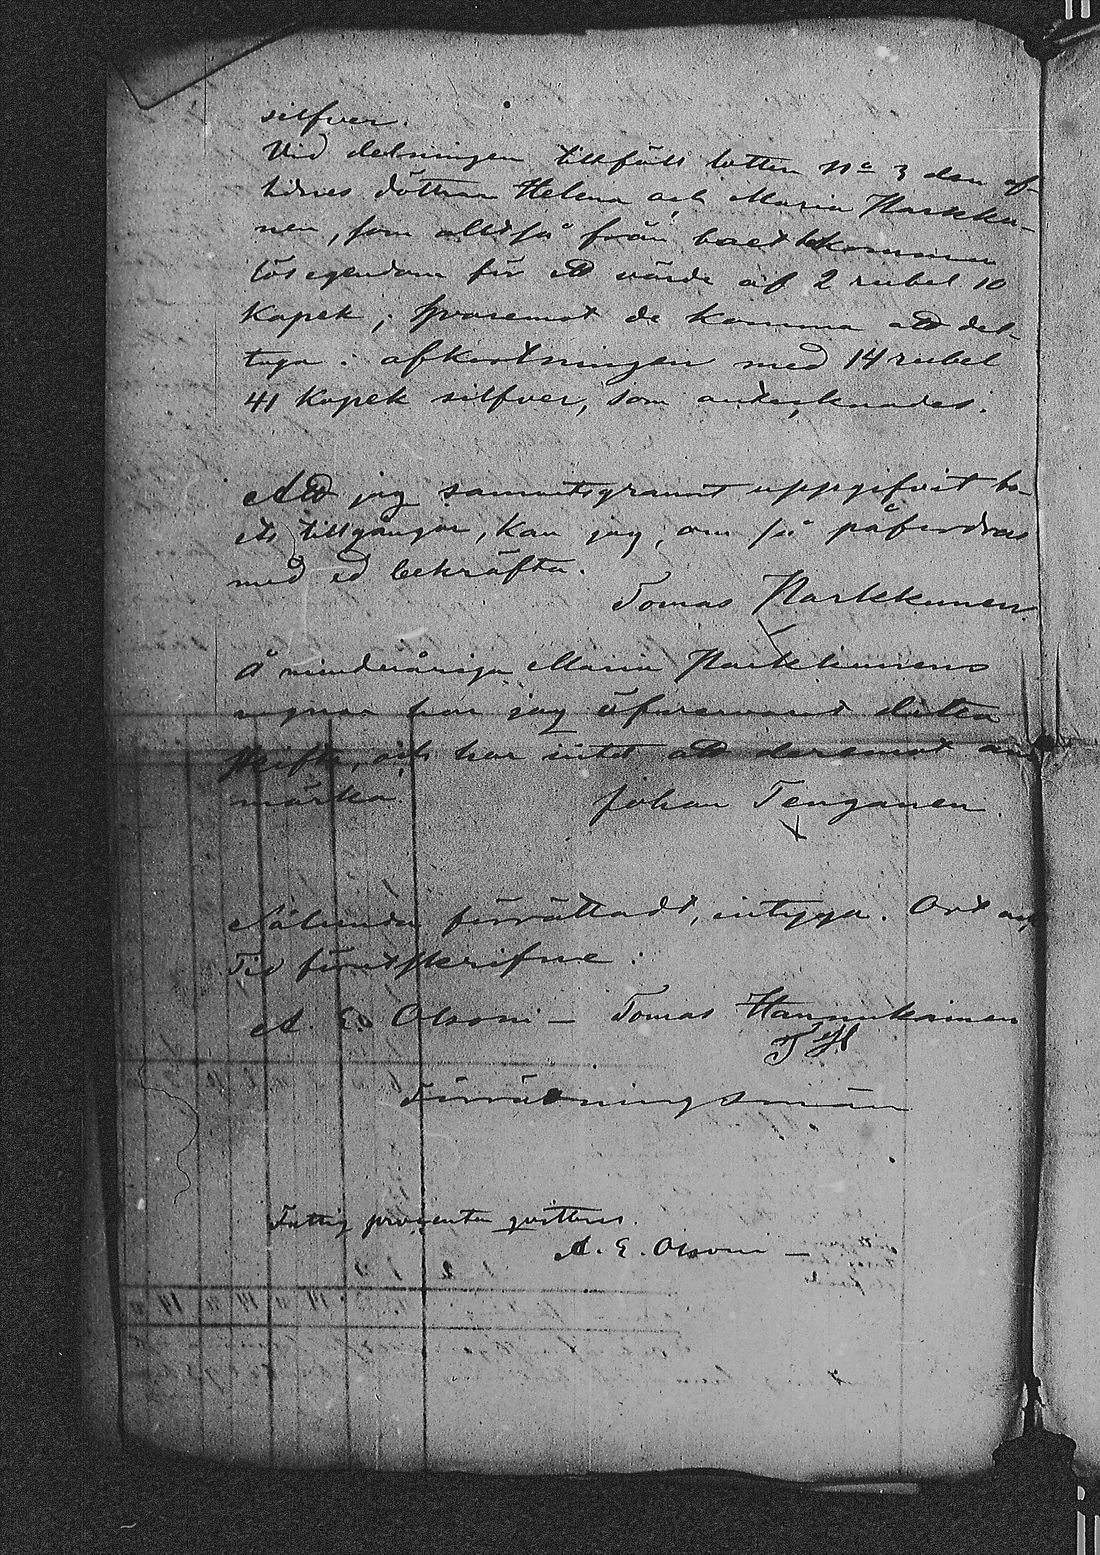 silfver.
Vid delningen tillföll lotten No 3 den af-
lidnes döttrar Helena och Maria Parkku-
nen, som alltså från boet bekommer
lösegendom för ett värde af 2 rubel 10
Kopek; hvaremot de komma att del-
taga i afkortningen med 14 rubel
41 Kopek silfver, som antecknades.
Att jag samvetsgrannt uppgifvit bo-
ets tillgångar, kan jag, om så påfordras
med ed bekräfta.
Tomas Parkkunen
Å minderåriga Maria Parkkunens
vägnar har jag öfvervarit detta
skifte, och har intet att deremot an-
märka.
Johan Tenganen
Sålunda förrättadt, intyga. Ort och
Tid förutskrifne:
A. E. Olsoni – Tomas Hannukainen
T H
Förrättningsmän
Fattig procenten qvitteras.
A. E. Olsoni –